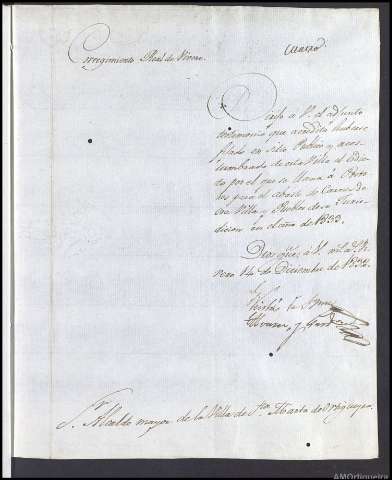 Corregimiento Real de Vivero.
Dirijo á V. el adjunto
testimonio que acredita haberse
fijado en sitio Publico y acos-
tumbrado de esta Villa el Edic-
to por el que se llama á Posto-
res para el abasto de Carnes de
esa Villa y Pueblos de su Juris-
dicion en el año de 1833.
Dios gûe. á V. m.s a.s Vi-
vero 14 de Diciembre de 1832.
Sr. Alcalde mayor de la Villa de Sta. Marta de Ortigueyra
AMOrtigueira